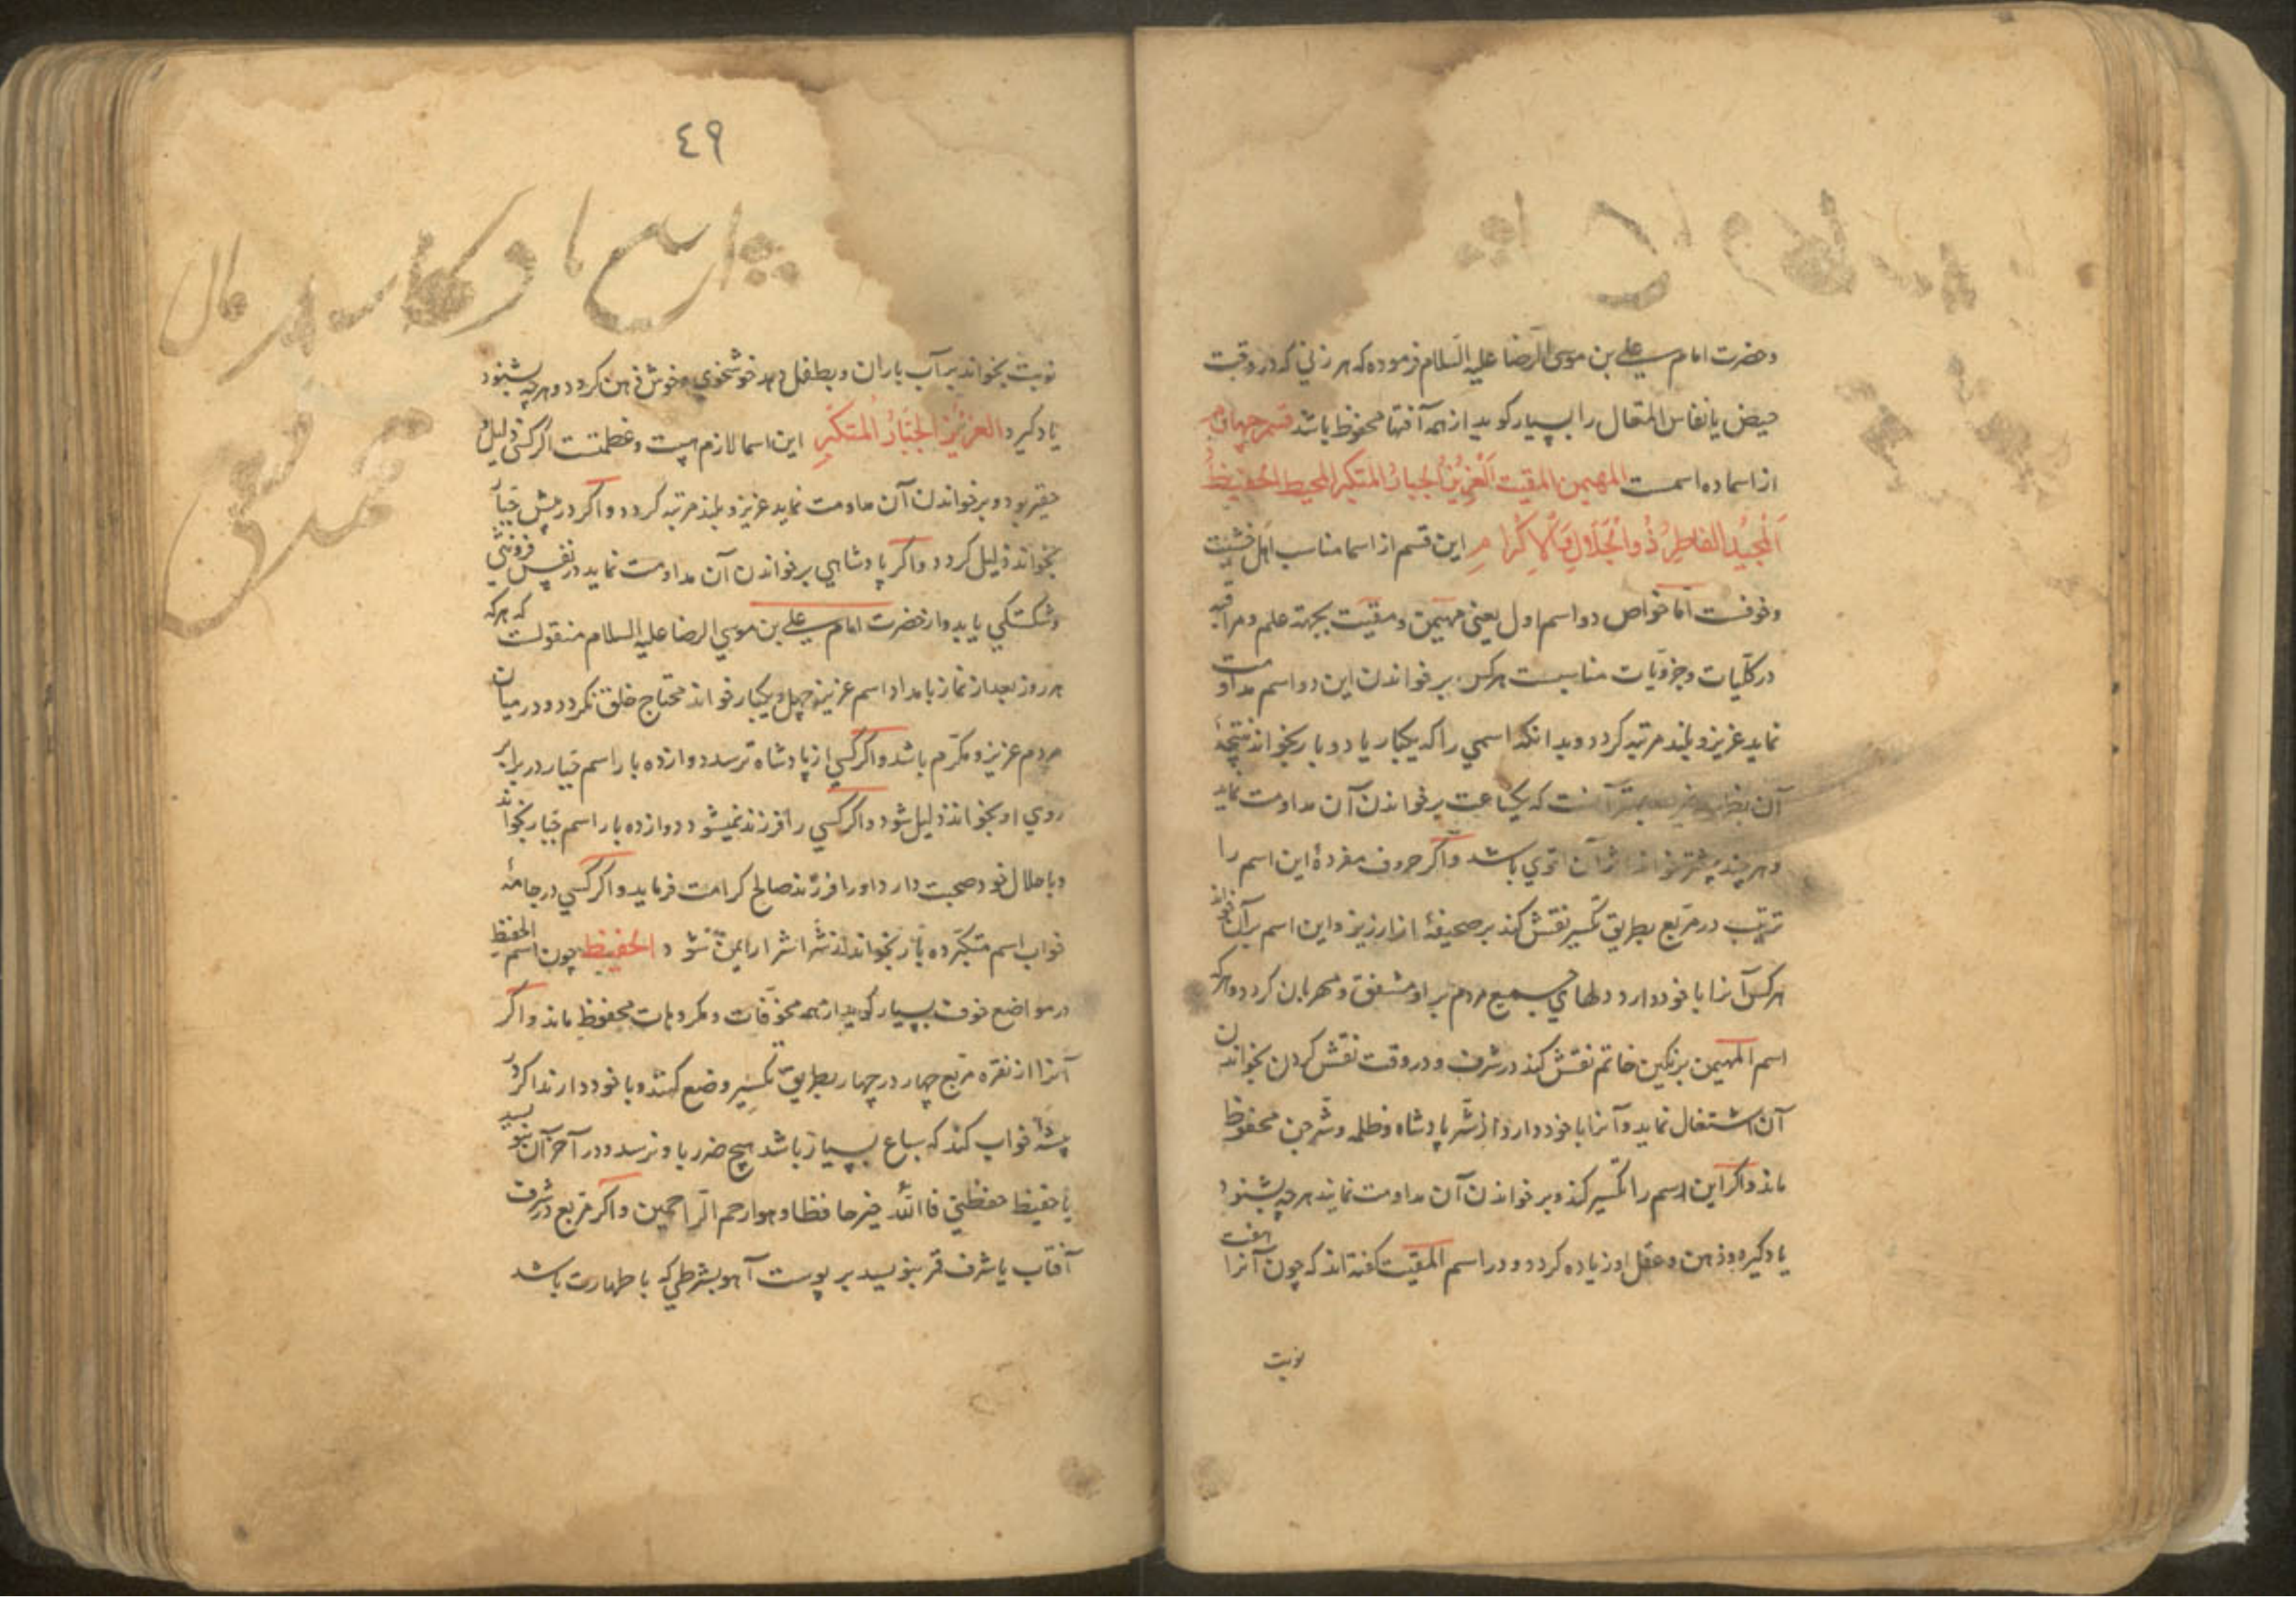 وحضرت امام علی بن موسی الرضا علیه السلام فرموده که هر زنی که در وقت
حیض یا نفاس المتعال را بسیار گوید از همه آفتها محفوظ باشد قسم چهارم
از اسما ده اسمست المهیمن المقیت العزیز الجبار المتکبر المحیط الحفیظ
المجید الفاطر ذو الجلال والاکرام این قسم از اسما مناسب اهل خشیت
وخوفست اما خواص دو اسم اول یعنی مهیمن ومقیت بجهة علم ومراقبه
در کلیات وجزویات مناسبست هرکس بر خواندن این دو اسم مداومت
نماید عزیز وبلند مرتبه گردد وبدانکه اسمی را که یکبار یا دو بار بخواند نتیجهٔ
آن که یکساعت بر خواندن آن مداومت نماید
وهر چند بیشتر خواند اثر آن قوی باشد واگر حروف مفردهٔ این اسم را
ترتیب در مربع بطریق تکسیر نقش کند بر صحیفهٔ از ارزیز واین اسم بر آن خواند
هرکس آنرا با خود دارد دلهای جمیع مردم بر او مشفق ومهربان گردد وهرکه
اسم المهیمن بر نگین خاتم نقش کند در شرف ودر وقت نقش کردن بخواندن
آن اشتغال نماید وآنرا با خود دارد از شر پادشاه وظلمه وشر جن محفوظ
ماند واگر این اسم را تکسیر کند وبر خواندن آن مداومت نماید هرچه بشنود
یاد گیرد وذهن وعقل او زیاده گردد ودر اسم المقیت گفته‌اند که چون آنرا هفت
نوبت
٤٩
نوبت بخواند بر آب باران وبطفل دهد خوشخوی وخوش ذهن گردد وهرچه بشنود
یاد گیرد العزیز الجبار المتکبر این اسما لازم هیبت وعظمتست اگر کسی ذلیل و
حقیر بود وبر خواندن آن مداومت نماید عزیز وبلند مرتبه گردد واگر در پیش جبار
بخواند ذلیل گردد واگر پادشاهی بر خواندن آن مداومت نماید در نفس فروتنی
وشکستگی یابد واز حضرت امام علی بن موسی الرضا علیه السلام منقولست که هرکه
هر روز بعد از نماز بامداد اسم عزیز چهل ویکبار خواند محتاج خلق نگردد ودر میان
مردم عزیز ومکرم باشد واگر کسی از پادشاه ترسد دوازده بار اسم جبار در برابر
روی او بخواند ذلیل شود واگر کسی را فرزند نمیشود دوازده بار اسم جبار بخواند
وبا حلال خود صحبت دارد اورا فرزند صالح کرامت فرماید واگر کسی در جامهٔ
خواب اسم متکبر ده بار بخواند از شر اشرار ایمن شود الحفیظ چون اسم الحفیظ
در مواضع خوف بسیار گوید از همه مخوفات ومکروهات محفوظ ماند واگر
آنرا از نقره مربع چهار در چهار بطریق تکسیر وضع کنند وبا خود دارند اگر در
بیشه خواب کند که سباع بسیار باشد هیچ ضرر باو نرسد ودر آخر آن بنویسد
یا حفیظ حفظنی فالله خیر حافظا وهو ارحم الراحمین واگر مربع در شرف
آفتاب یا شرف قمر بنویسد بر پوست آهو بشرطی که با طهارت باشد